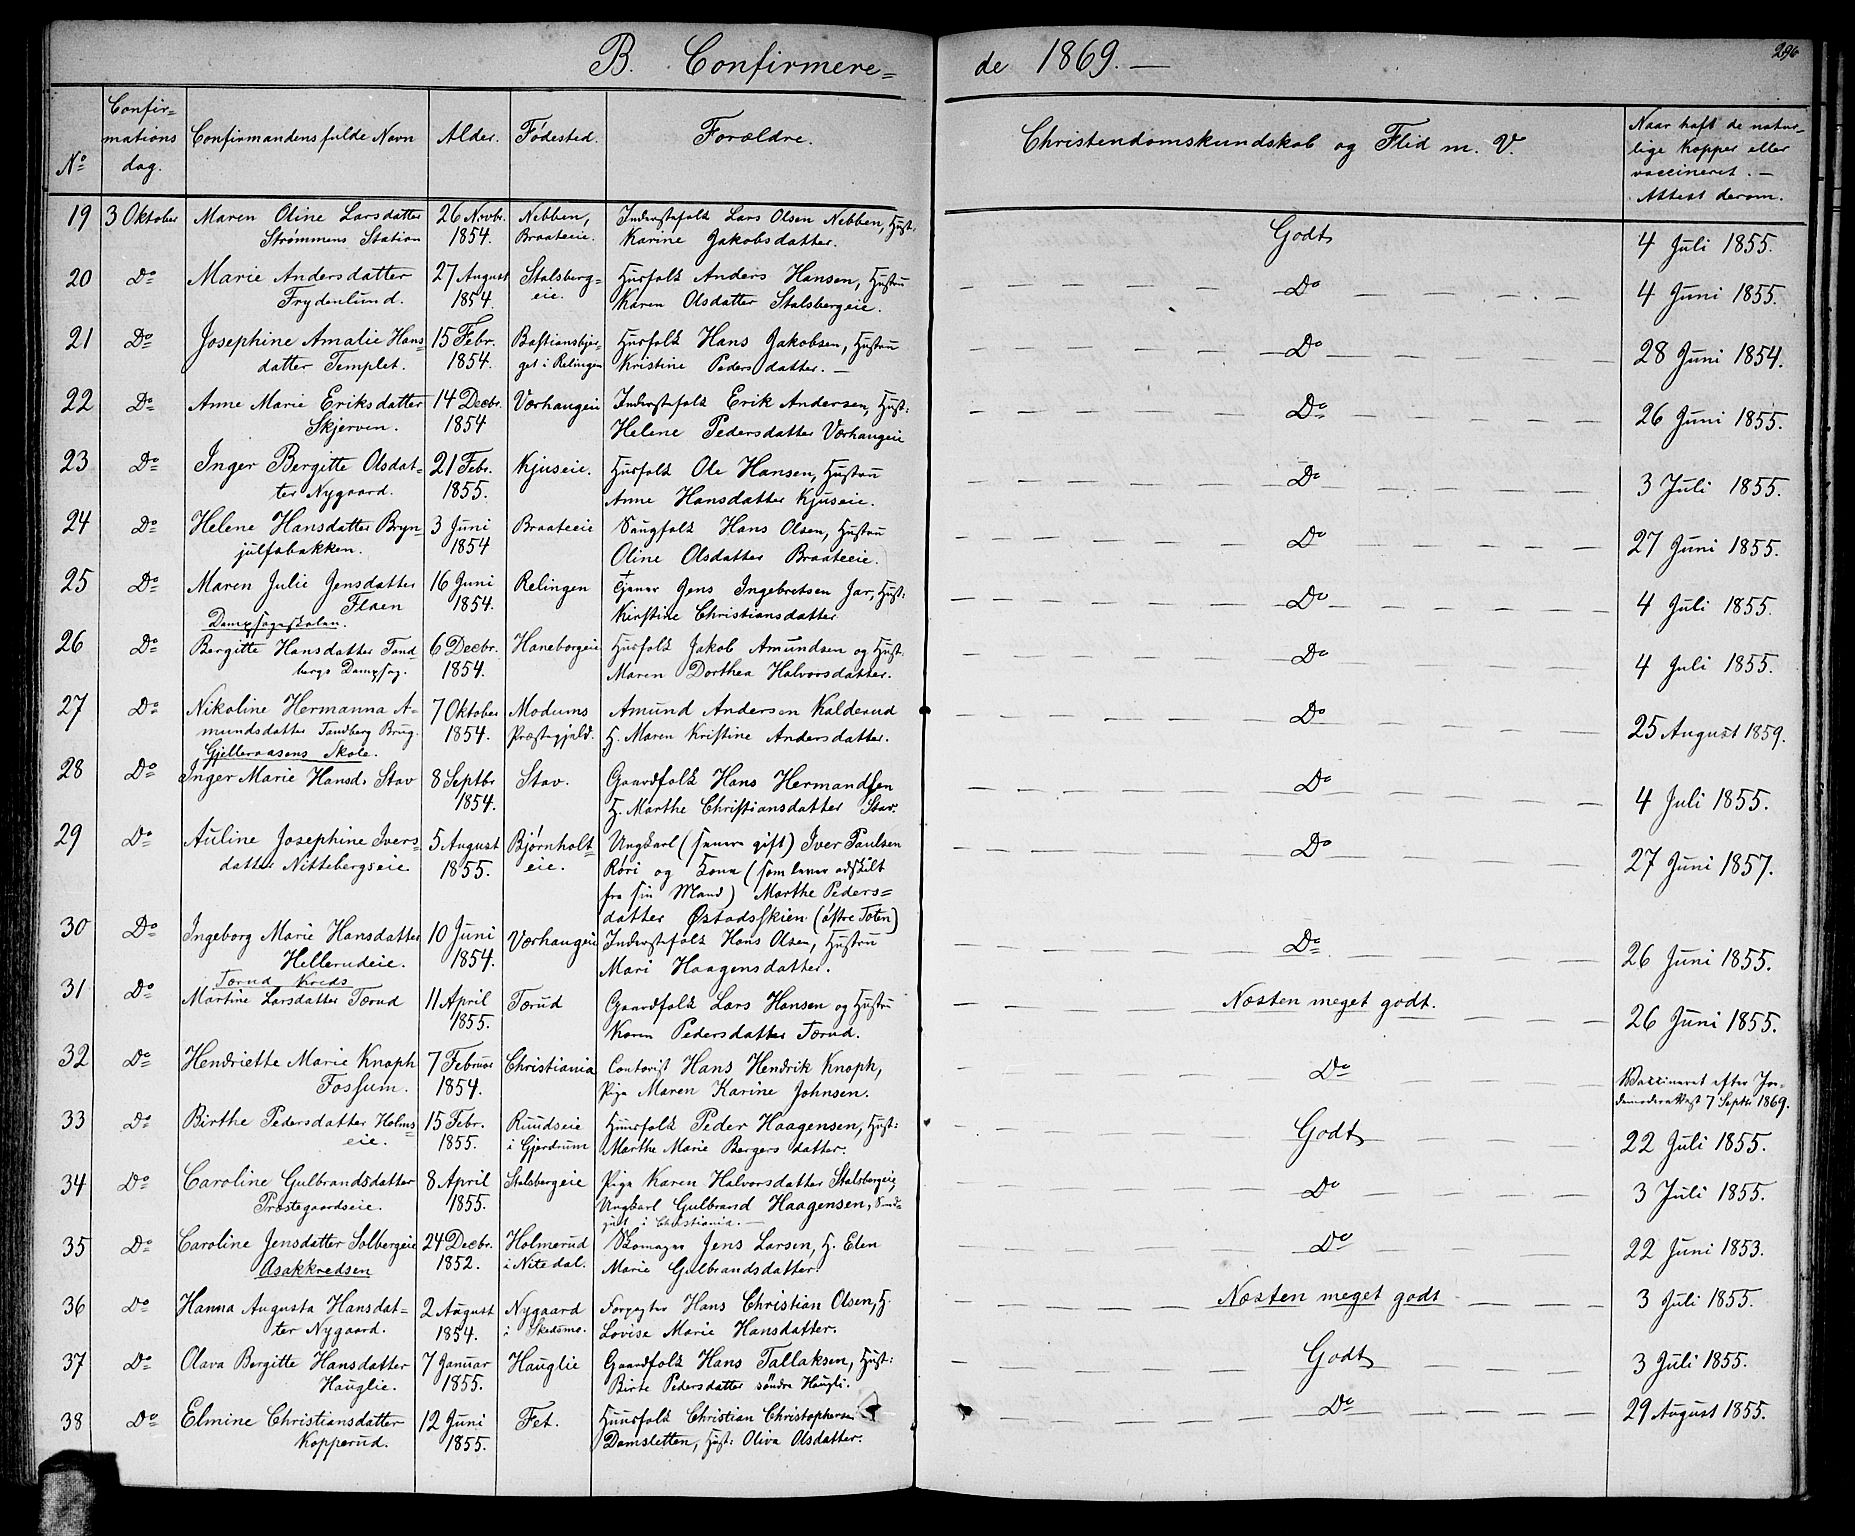 B. Confirmere=
de 1869.—
296
No
Confir=
mations
dag.
Confirmandens fulde Navn
Alder.
Fødested.
Forældre.
Christendomskundskab og Flid m. V.
Naar haft de natur=
lige Kopper eller
vaccineret.—
Attest derom.
19 3 Oktober Maren Oline Larsdatter 26 Novbr. Nebben, Inderstefolk Lars Olsen Nebben, Hust: Godt 4 Juli 1855.
Strømmens Station 1854. Braateeie. Karine Jakobsdatter.
20 Do Marie Andersdatter 27 August Stalsberg= Husfolk Anders Hansen, Hustru Do 4 Juni 1855.
Frydenlund. 1854. eie. Karen Olsdatter Stalsbergeie.
21 Do Josephine Amalie Hans= 15 Febr. Bastiansbjer= Husfolk Hans Jakobsen, Hustru Do 28 Juni 1854.
datter Templet. 1854. get i Relingen Kristine Pedersdatter.—
22 Do Anne Marie Eriksdatter 14 Decbr. Vorhaugeie Inderstefolk Erik Andersen, Hust: Do 26 Juni 1855.
Skjerven. 1854 Helene Pedersdatter Vorhaugeie
23 Do Inger Bergitte Olsdat= 21 Febr. Kjuseie. Husfolk Ole Hansen, Hustru Do 3 Juli 1855.
ter Nygaard. 1855. Anne Hansdatter Kjuseie.
24 Do Helene Hansdatter Bryn= 3 Juni Braateeie Saugfolk Hans Olsen, Hustru Do 27 Juni 1855.
julfsbakken. 1854 Oline Olsdatter Braateeie.
25 Do Maren Julie Jensdatter 16 Juni Relingen Tjener Jens Ingebretsen Jar, Hust: Do 4 Juli 1855.
Flaen 1854. Kirstine Christiansdatter
Dampsagskolen.
26 Do Bergitte Hansdatter Tand= 6 Decbr. Haneborgeie Husfolk Jakob Amundsen og Hust. Do 4 Juli 1855.
bergs Dampsag. 1854. Maren Dorthea Halvorsdatter.
27 Do Nikoline Hermanna A= 7 Oktober Modums Amund Andersen Kalderud Do 25 August 1859.
mundsdatter Tandberg Brug. 1854. Præstegjæld. H. Maren Kristine Andersdatter.
Gjelleraasens Skole.
28 Do Inger Marie Hansd. Stav 8 Septbr. Stav. Gaardfolk Hans Hermandsen Do 4 Juli 1855.
1854. H. Marthe Christiansdatter Stav.
29 Do Auline Josephine Ivers= 5 August Bjørnholt= Ungkarl (senere gift) Iver Paulsen Do 27 Juni 1857.
datter Nittebergseie 1855. eie. Røri og Kone (som lever adskilt
fra sin Mand) Marthe Peders=
datter Østadsskien (østre Toten)
30 Do Ingeborg Marie Hansdatter 10 Juni Vorhaugeie Inderstefolk Hans Olsen, Hustru Do 26 Juni 1855.
Hellerudeie. 1854. Mari Haagensdatter.
Tærud Kreds
31 Do Martine Larsdatter Tærud 11 April Tærud Gaardfolk Lars Hansen og Hustru Næsten meget godt. 26 Juni 1855.
1855. Karen Pedersdatter Tærud.
32 Do Hendriette Marie Knoph 7 Februar Christiania Contorist Hans Hendrik Knoph, Do Vaccineret efter Jor=
Fossum. 1854. Pige Maren Karine Johnsen. demoderattest 7 Septbr 1869.
33 Do Birthe Pedersdatter Holms= 15 Febr. Ruudseie Huusfolk Peder Haagensen, Hust: Godt 22 Juli 1855.
eie. 1855. i Gjerdrum Marthe Marie Bergersdatter.
34 Do Caroline Gulbrandsdatter 8 April Stalsbergeie Pige Karen Halvorsdatter Stalsbergeie, Do 3 Juli 1855.
Præstegaardseie. 1855. Ungkarl Gulbrand Haagensen,
i Christiania.—
35 Do Caroline Jensdatter Solbergeie 24 Decbr. Holmerud Skomager Jens Larsen, H. Elen Do 22 Juni 1853.
1852. i Nitedal. Marie Gulbrandsdatter.
Asakkredsen
36 Do Hanna Augusta Hansdat= 2 August Nygaard Forpagter Hans Christian Olsen, H. Næsten meget godt 3 Juli 1855.
ter Nygaard. 1854. i Skedsmo. Lovise Marie Hansdatter.
37 Do Olava Bergitte Hansdatter 7 Januar Hauglie Gaardfolk Hans Tallaksen, Hust: Godt 3 Juli 1855.
Hauglie. 1855. Birte Pedersdatter søndre Haugli.
38 Do Elmine Christiansdatter 12 Juni Fet. Huusfolk Christian Christophersen Do 29 August 1855.
Kopperud. 1855. Damsletten, Hust: Oliva Olsdatter.